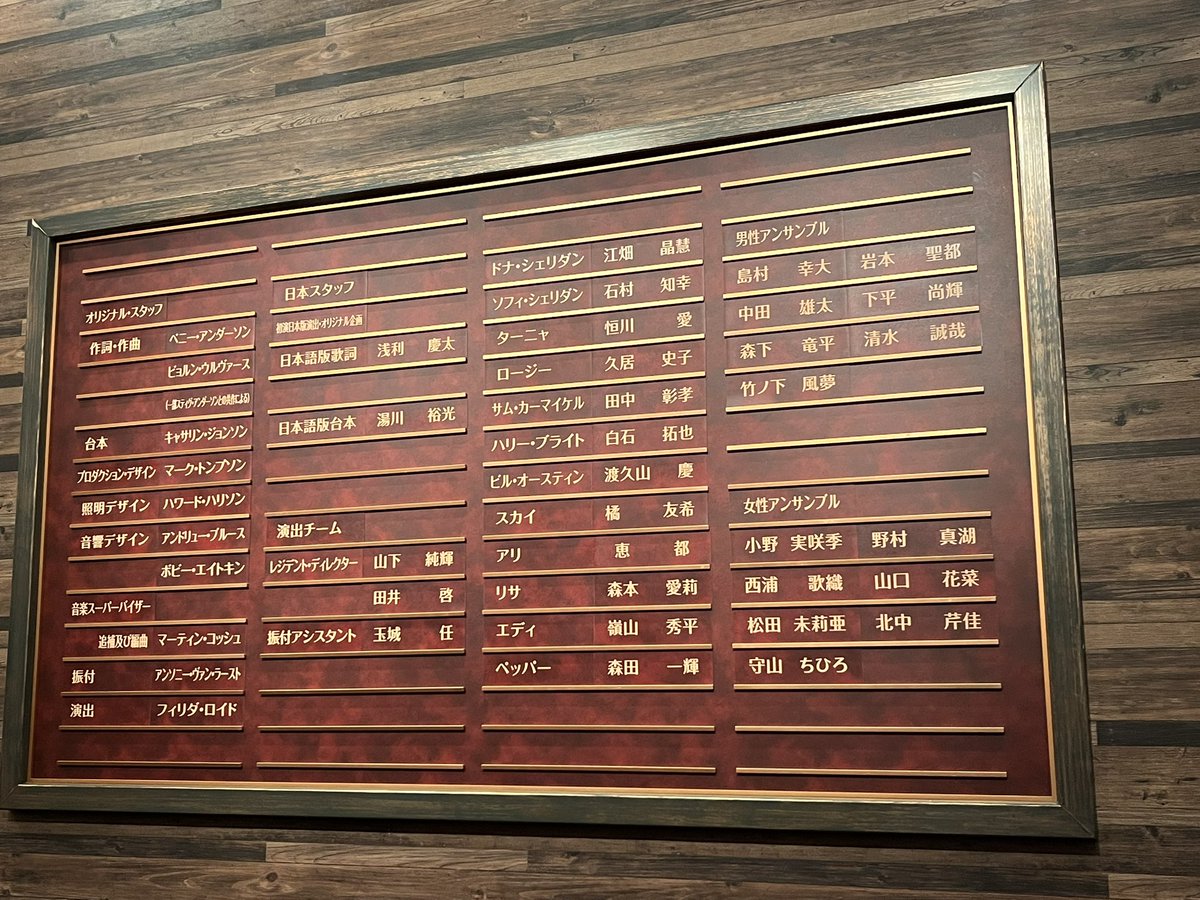 オリジナル・スタッフ
作詞・作曲 ベニー・アンダーソン
ビョルン・ウルヴァース
(一部スティグ・アンダーソンとの共作による)
台本 キャサリン・ジョンソン
プロダクション・デザイン マーク・トンプソン
照明デザイン ハワード・ハリソン
音響デザイン アンドリュー・ブルース
ボビー・エイトキン
音楽スーパーバイザー
追補及び編曲 マーティン・コッシュ
振付 アンソニー・ヴァン・ラースト
演出 フィリダ・ロイド
日本スタッフ
初演日本版演出・オリジナル企画
日本語版歌詞 浅利 慶太
日本語版台本 湯川 裕光
演出チーム
レジデント・ディレクター 山下 純輝
田井 啓
振付アシスタント 玉城 任
ドナ・シェリダン 江畑 晶慧
ソフィ・シェリダン 石村 知幸
ターニャ 恒川 愛
ロージー 久居 史子
サム・カーマイケル 田中 彰孝
ハリー・ブライト 白石 拓也
ビル・オースティン 渡久山 慶
スカイ 橘 友希
アリ 恵 都
リサ 森本 愛莉
エディ 嶺山 秀平
ペッパー 森田 一輝
男性アンサンブル
島村 幸大 岩本 聖都
中田 雄太 下平 尚輝
森下 竜平 清水 誠哉
竹ノ下 風夢
女性アンサンブル
小野 実咲季 野村 真湖
西浦 歌織 山口 花菜
松田 未莉亜 北中 芹佳
守山 ちひろ